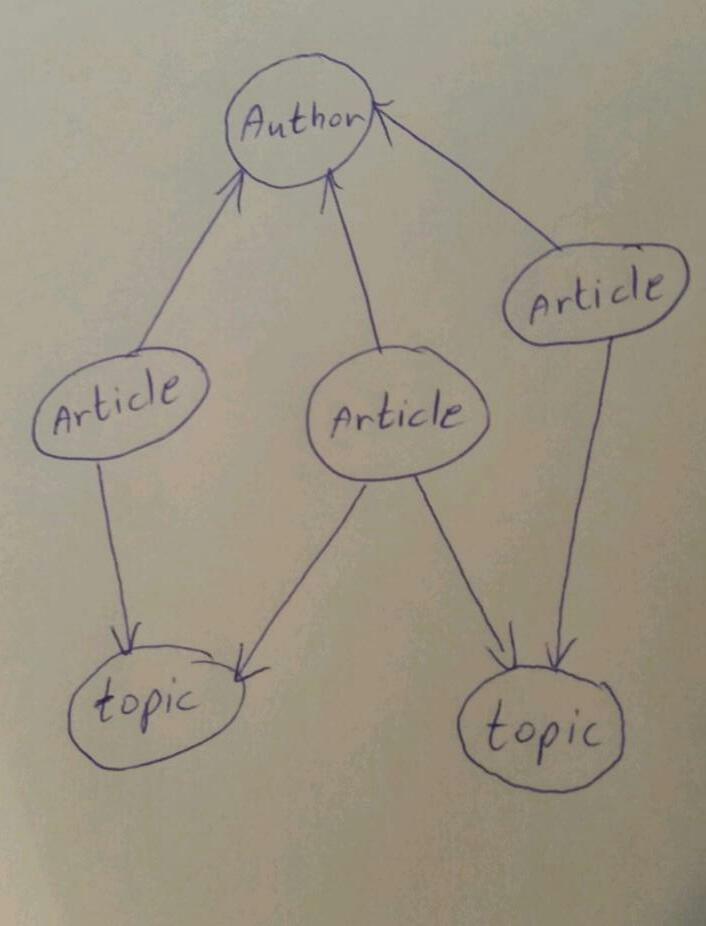 Author
Article
Article
Article
topic
topic